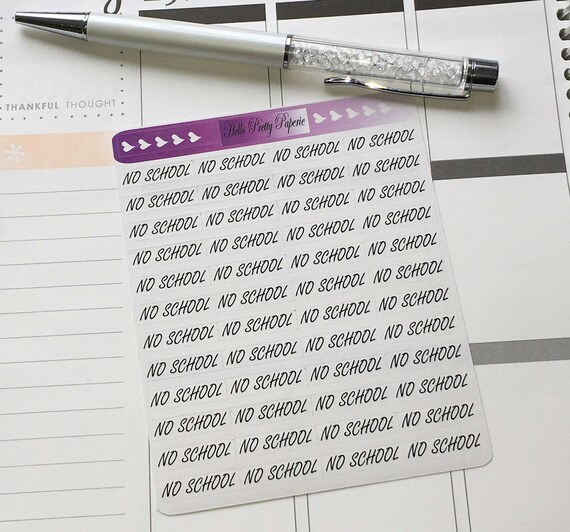 THANKFUL THOUGHT
Hello Pretty Paperie
NO SCHOOL NO SCHOOL NO SCHOOL NO SCHOOL
NO SCHOOL NO SCHOOL NO SCHOOL NO SCHOOL
NO SCHOOL NO SCHOOL NO SCHOOL NO SCHOOL
NO SCHOOL NO SCHOOL NO SCHOOL NO SCHOOL
NO SCHOOL NO SCHOOL NO SCHOOL NO SCHOOL
NO SCHOOL NO SCHOOL NO SCHOOL NO SCHOOL
NO SCHOOL NO SCHOOL NO SCHOOL NO SCHOOL
NO SCHOOL NO SCHOOL NO SCHOOL NO SCHOOL
NO SCHOOL NO SCHOOL NO SCHOOL NO SCHOOL
NO SCHOOL NO SCHOOL NO SCHOOL NO SCHOOL
NO SCHOOL NO SCHOOL NO SCHOOL NO SCHOOL
NO SCHOOL NO SCHOOL NO SCHOOL NO SCHOOL